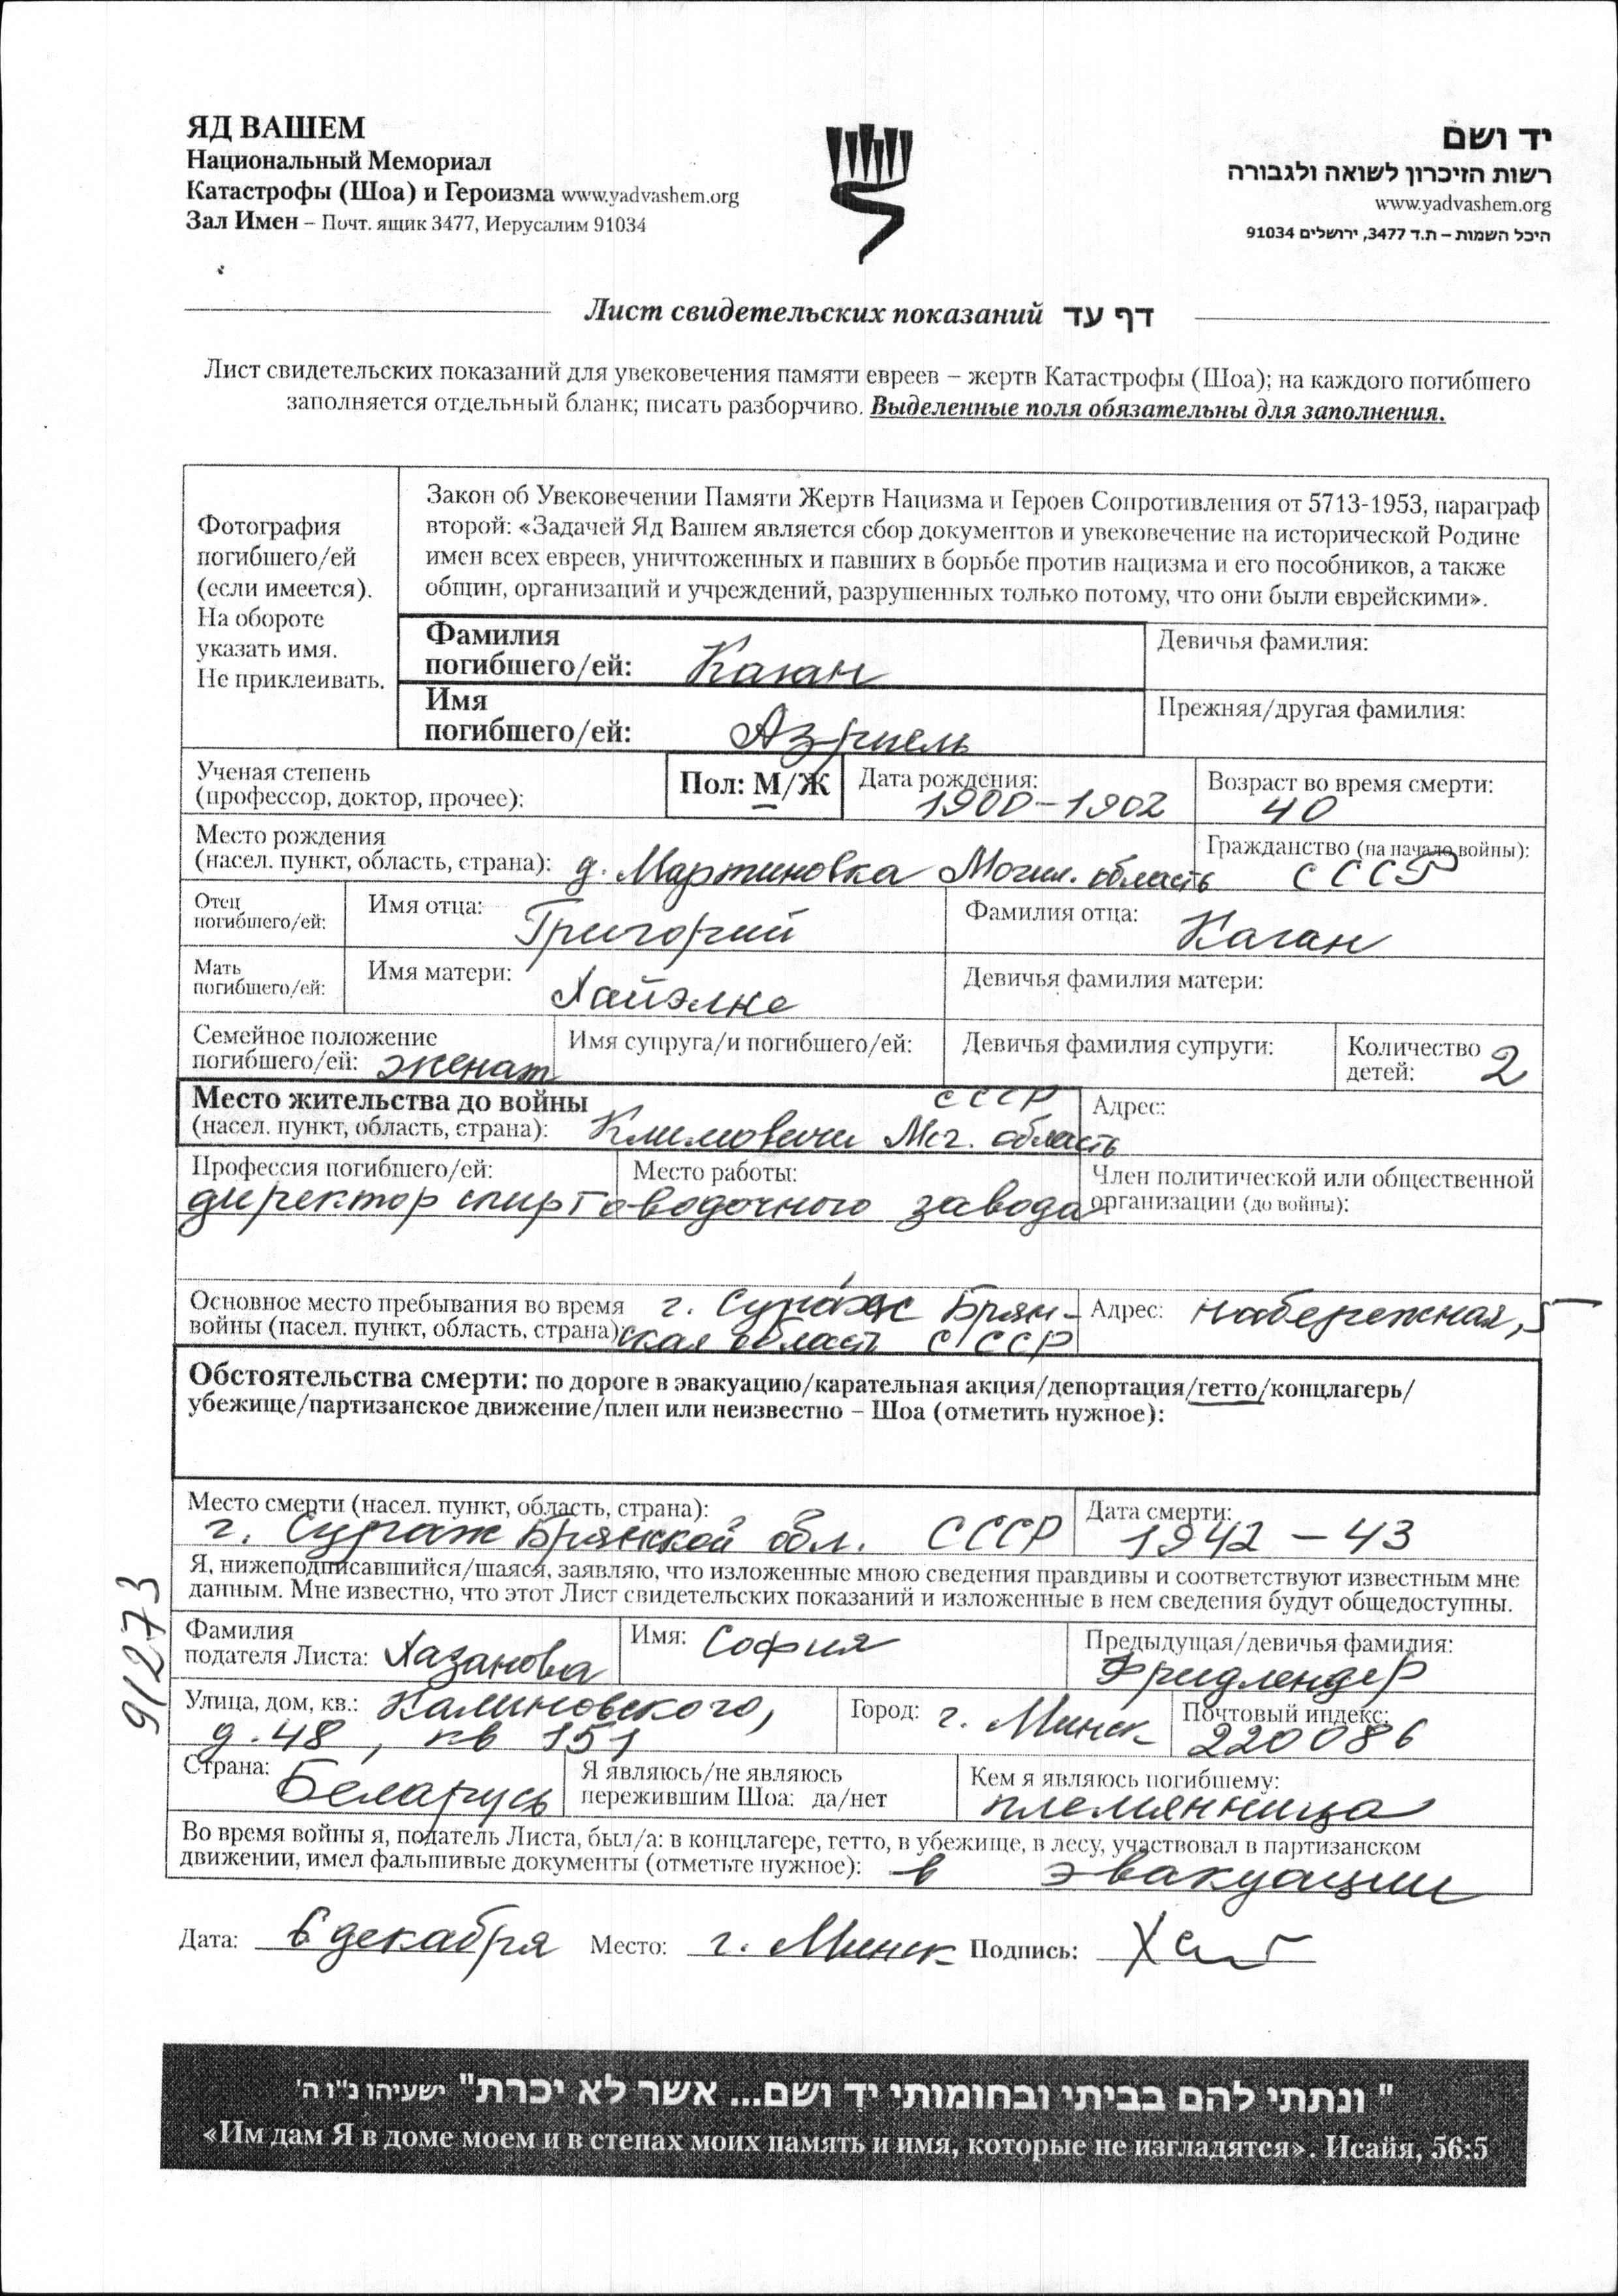 ЯД ВАШЕМ
Национальный Мемориал
Катастрофы (Шоа) и Героизма www.yadvashem.org
Зал Имен – Почт. ящик 3477, Иерусалим 91034
יד ושם
רשות הזיכרון לשואה ולגבורה
www.yadvashem.org
היכל השמות – ת.ד 3477, ירושלים 91034
Лист свидетельских показаний דף עד
Лист свидетельских показаний для увековечения памяти евреев – жертв Катастрофы (Шоа); на каждого погибшего
заполняется отдельный бланк; писать разборчиво. Выделенные поля обязательны для заполнения.
Фотография
погибшего/ей
(если имеется).
На обороте
указать имя.
Не приклеивать.
Закон об Увековечении Памяти Жертв Нацизма и Героев Сопротивления от 5713-1953, параграф
второй: «Задачей Яд Вашем является сбор документов и увековечение на исторической Родине
имен всех евреев, уничтоженных и павших в борьбе против нацизма и его пособников, а также
общин, организаций и учреждений, разрушенных только потому, что они были еврейскими».
Фамилия
погибшего/ей: Каган
Девичья фамилия:
Имя
погибшего/ей: Азриель
Прежняя/другая фамилия:
Ученая степень
(профессор, доктор, прочее):
Пол: М/Ж
Дата рождения:
1900-1902
Возраст во время смерти:
40
Место рождения
(насел. пункт, область, страна): д. Мартиновка Могил. область
Гражданство (на начало войны):
СССР
Отец
погибшего/ей:
Имя отца:
Григорий
Фамилия отца:
Каган
Мать
погибшего/ей:
Имя матери:
Хайэлке
Девичья фамилия матери:
Семейное положение
погибшего/ей: женат
Имя супруга/и погибшего/ей:
Девичья фамилия супруги:
Количество
детей: 2
Место жительства до войны СССР
(насел. пункт, область, страна): Климовичи Мог. область
Адрес:
Профессия погибшего/ей:
Место работы:
директор спиртоводочного завода
Член политической или общественной
организации (до войны):
Основное место пребывания во время г. Сураж Брян-
войны (насел. пункт, область, страна) ская область СССР
Адрес: Набережная, 5
Обстоятельства смерти: по дороге в эвакуацию/карательная акция/депортация/гетто/концлагерь/
убежище/партизанское движение/плен или неизвестно – Шоа (отметить нужное):
Место смерти (насел. пункт, область, страна):
г. Сураж Брянской обл. СССР
Дата смерти:
1942 – 43
Я, нижеподписавшийся/шаяся, заявляю, что изложенные мною сведения правдивы и соответствуют известным мне
данным. Мне известно, что этот Лист свидетельских показаний и изложенные в нем сведения будут общедоступны.
9/273
Фамилия
подателя Листа: Хазанова
Имя: София
Предыдущая/девичья фамилия:
Фридлендер
Улица, дом, кв.: Калиновского,
д. 48, кв 151
Город: г. Минск
Почтовый индекс:
220086
Страна:
Беларусь
Я являюсь/не являюсь
пережившим Шоа: да/нет
Кем я являюсь погибшему:
племянница
Во время войны я, податель Листа, был/а: в концлагере, гетто, в убежище, в лесу, участвовал в партизанском
движении, имел фальшивые документы (отметьте нужное): в эвакуации
Дата: 6 декабря Место: г. Минск Подпись:
" ונתתי להם בביתי ובחומותי יד ושם... אשר לא יכרת" ישעיהו נ"ו ה'
«Им дам Я в доме моем и в стенах моих память и имя, которые не изгладятся». Исайя, 56:5